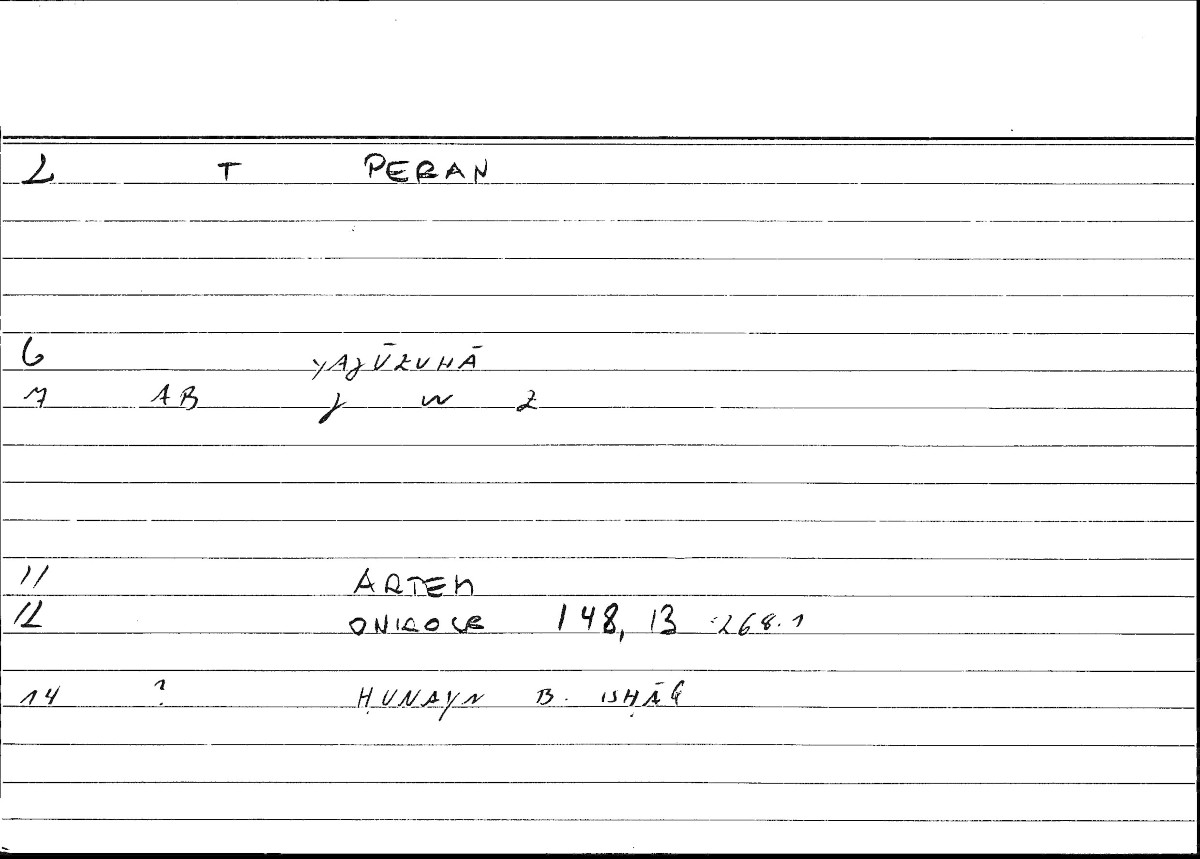 2 T PERAN
6 YAJŪZUHĀ
7 AB j w z
11 ARTEM
12 ONIROCR 148, 13 :268.1
14 ? ḤUNAYN B. ISḤĀQ